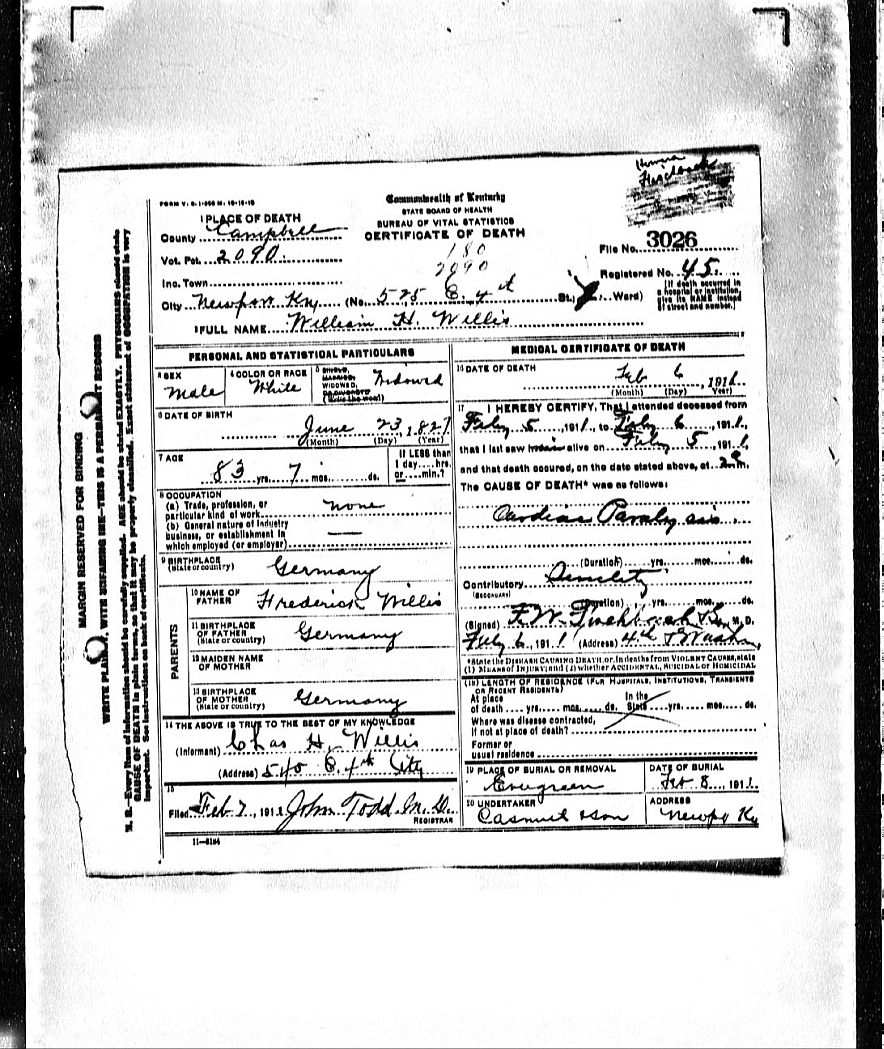 FORM V. S. 1-
Commonwealth of Kentucky
STATE BOARD OF HEALTH
BUREAU OF VITAL STATISTICS
CERTIFICATE OF DEATH
1 PLACE OF DEATH
County Campbell
Vot. Pct. 2090.
180
2090
File No. 3026
Registered No. 45.
Inc. Town
City Newport Ky (No. 525 E. 4th St.; Ward)
[If death occurred in a hospital or institution, give its NAME instead of street and number.]
2 FULL NAME William H. Willis
PERSONAL AND STATISTICAL PARTICULARS
3 SEX Male
4 COLOR OR RACE White
5 SINGLE, MARRIED, WIDOWED, OR DIVORCED (Write the word) Widowed
6 DATE OF BIRTH
June 23, 1827
(Month) (Day) (Year)
7 AGE
83 yrs. 7 mos. ds.
If LESS than 1 day....hrs. or....min.?
8 OCCUPATION
(a) Trade, profession, or particular kind of work none
(b) General nature of industry business, or establishment in which employed (or employer) —
9 BIRTHPLACE (State or country) Germany
PARENTS
10 NAME OF FATHER Frederick Willis
11 BIRTHPLACE OF FATHER (State or country) Germany
12 MAIDEN NAME OF MOTHER
13 BIRTHPLACE OF MOTHER (State or country) Germany
14 THE ABOVE IS TRUE TO THE BEST OF MY KNOWLEDGE
(Informant) Chas H. Willis
(Address) 540 E. 4th City
15
Filed Feb 7, 1911 John Todd M. D.
REGISTRAR
11—5184
MEDICAL CERTIFICATE OF DEATH
16 DATE OF DEATH
Feb 6 1911
(Month) (Day) (Year)
17 I HEREBY CERTIFY, That I attended deceased from
Feby 5, 1911, to Feby 6, 1911,
that I last saw him alive on Feby 5 1911,
and that death occured, on the date stated above, at 2 m.
The CAUSE OF DEATH* was as follows:
Cardiac Paralysis
(Duration) yrs. mos. ds.
Contributory Senility
(SECONDARY)
(Duration) yrs. mos. ds.
(Signed) F. W. M. D.
Feby 6, 1911 (Address) 4th & Wash
*State the DISEASE CAUSING DEATH, or, in deaths from VIOLENT CAUSES, state
(1) MEANS OF INJURY; and (2) whether ACCIDENTAL, SUICIDAL or HOMICIDAL
(18) LENGTH OF RESIDENCE (FOR HOSPITALS, INSTITUTIONS, TRANSIENTS OR RECENT RESIDENTS)
At place of death yrs. mos. ds. In the State yrs. mos. ds.
Where was disease contracted,
if not at place of death?
Former or
usual residence
19 PLACE OF BURIAL OR REMOVAL
Evergreen
DATE OF BURIAL
Feb 8, 1911
20 UNDERTAKER
ADDRESS
Newpo Ky
MARGIN RESERVED FOR BINDING
WRITE PLAINLY, WITH UNFADING INK—THIS IS A PERMANENT RECORD
N. B.—Every item of information should be carefully supplied. AGE should be stated EXACTLY. PHYSICIANS should state
CAUSE OF DEATH in plain terms, so that it may be properly classified. Exact statement of OCCUPATION is very
important. See instructions on back of certificate.